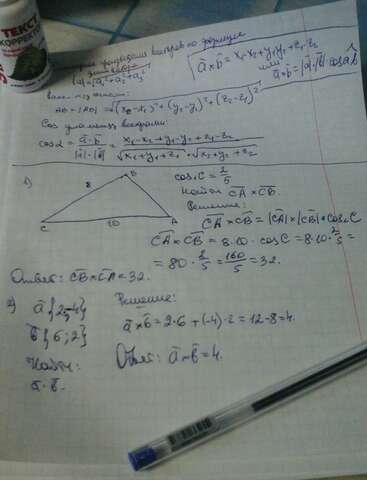 ТЕКСТ
КОРРЕКТОР
векторов по формуле
|a| = √a₁²+a₂²+a₃²
a̅×b̅ = x₁·x₂+y₁y₂+z₁·z₂
или
a̅·b̅ = |a̅|·|b̅| cos a͡b
AB = |AB| = √(x₂-x₁)²+(y₂-y₁)²+(z₂-z₁)²
Cos угла между векторами:
cos α = a̅·b̅ / |a̅|·|b̅| = x₁·x₂+y₁·y₂+z₁·z₂ / √x₁+y₁+z₁ · √x₂+y₂+z₂
1)
B
8
C
10
A
cos C = 2/5
Найти C̅A̅ × C̅B̅.
Решение:
C̅A̅ × C̅B̅ = |C̅A̅|×|C̅B̅|·cos C
C̅A̅ × C̅B̅ = 8·10·cos C = 8·10·2/5 =
= 80·2/5 = 160/5 = 32.
Ответ: C̅B̅×C̅A̅ = 32.
2) a̅ {2;-4}
b̅ {6;2}
Найти:
a̅·b̅.
Решение:
a̅×b̅ = 2·6+(-4)·2 = 12-8 = 4.
Ответ: a̅×b̅ = 4.